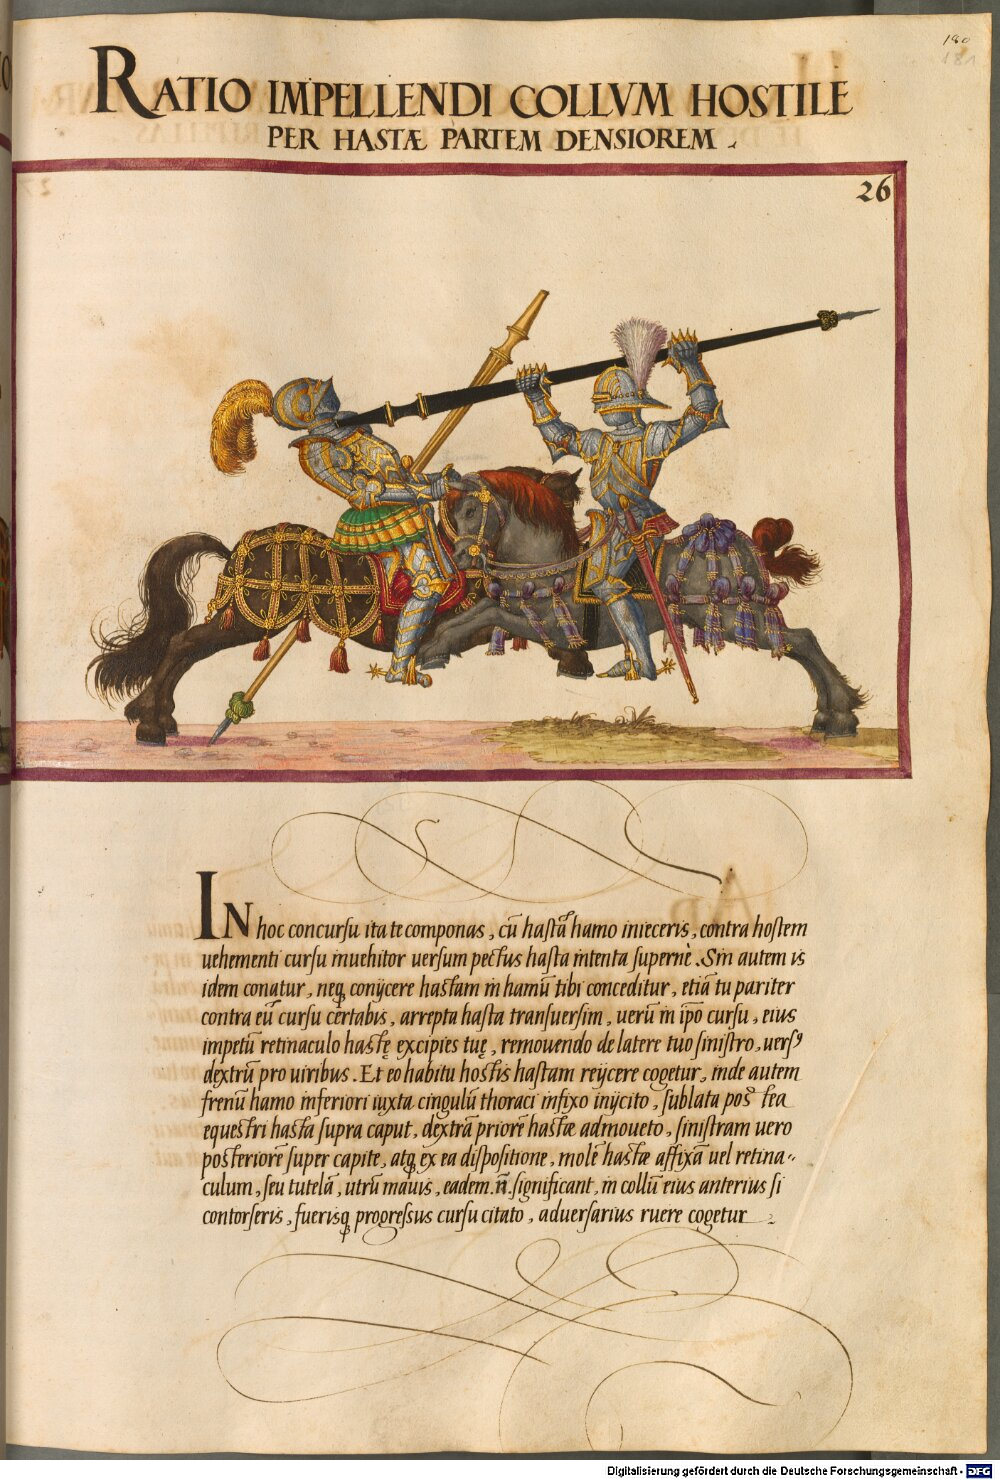 180
181
RATIO IMPELLENDI COLLVM HOSTILE
PER HASTÆ PARTEM DENSIOREM.
26
IN hoc concursu ita te componas, cū hastā hamo inieceris, contra hostem
uehementi cursu inuehitor uersum pectus hasta intenta supernè. Sin autem is
idem conatur, neq conijcere hastam in hamū tibi conceditur, etiā tu pariter
contra eū cursu certabis, arrepta hasta transuersim, uerū in ip̄o cursu, eius
impetū retinaculo hastę excipies tuę, remouendo de latere tuo sinistro, uersꝰ
dextrū pro uiribus. Et eo habitu hostis hastam reijcere cogetur, inde autem
frenū hamo inferiori iuxta cingulū thoraci infixo inijcito, sublata postea
equestri hasta supra caput, dextrā priorē hastæ admoueto, sinistram uero
posteriorē super capite, atq ex ea dispositione, molē hastæ affixā uel retina-
culum, seu tutelā, utrū mauis, eadem .n̄. significant, in collū eius anterius si
contorseris, fuerisq progressus cursu citato, aduersarius ruere cogetur.
Digitalisierung gefördert durch die Deutsche Forschungsgemeinschaft - DFG